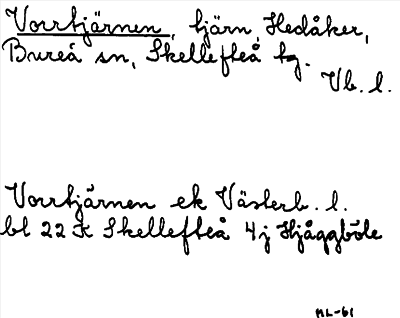 Vorrtjärnen, tjärn, Hedåker,
Bureå sn, Skellefteå tg.
Vb. l.
Vorrtjärnen ek Västerb. l.
bl 22 K Skellefteå 4j Hjåggböle
ML-61